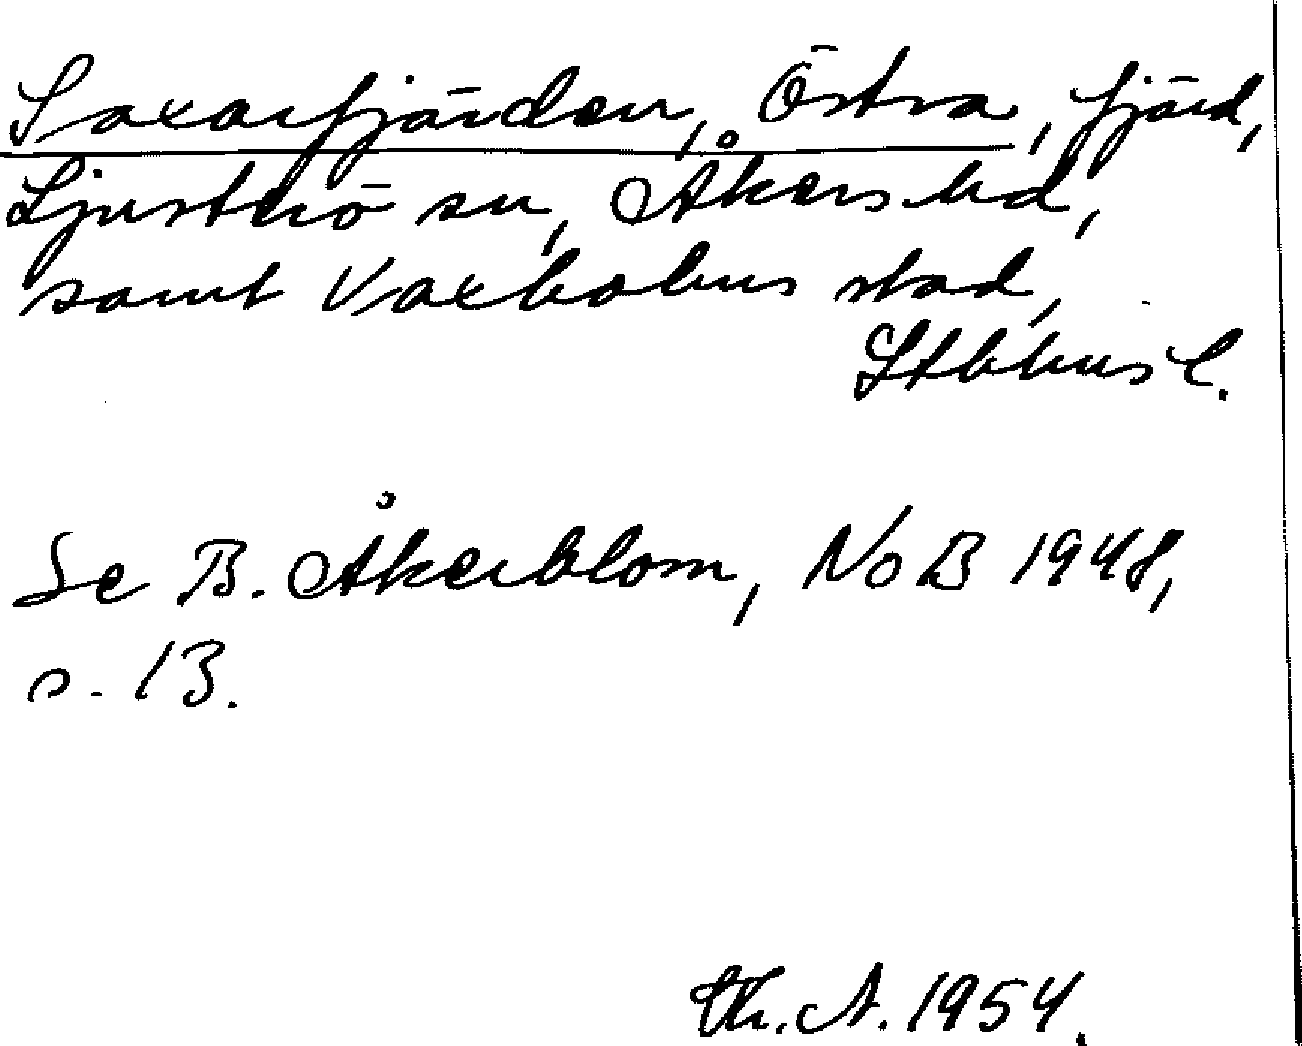 Saxarfjärden, Östra, fjärd,
Ljusterö sn, Åkers hd,
samt Vaxholms stad,
Sthlms l.
Se B. Åkerblom, NoB 1948,
s. 13.
Th. A. 1954.